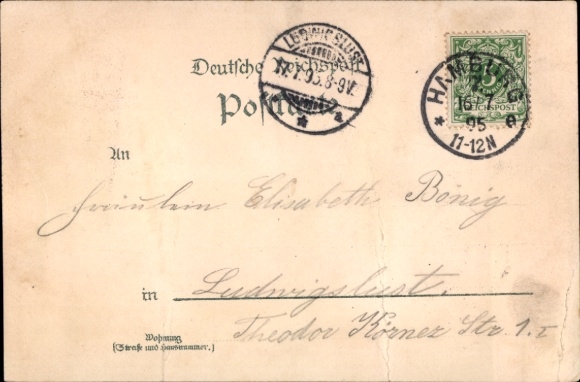 LUDWIGSLUST
17.7.95.8-9V.
HAMBURG
16.7.
95
11-12N
REICHSPOST
Deutsche Reichspost
Postkarte
An
Fräulein Elisabeth Bönig
in Ludwigslust.
Wohnung
(Straße und Hausnummer.)
Theodor Körner Str. 1. I